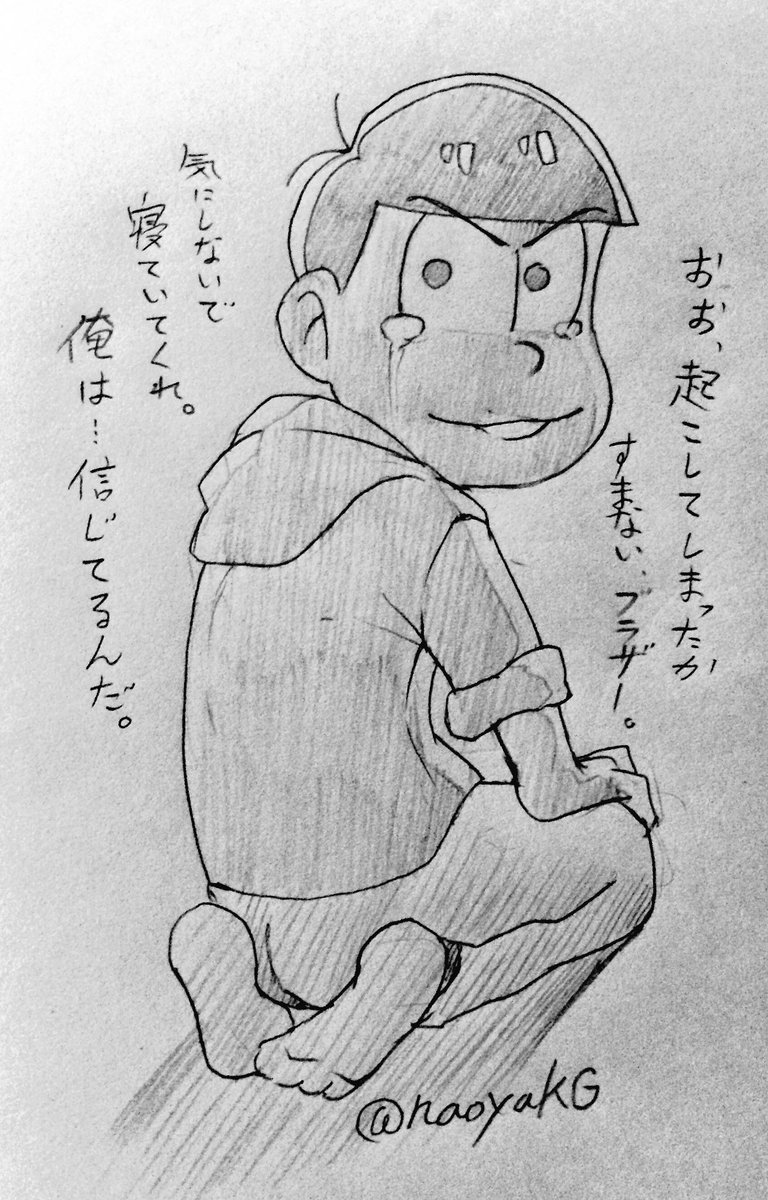 おお、起こしてしまったか
すまない、ブラザー。
気にしないで
寝ていてくれ。
俺は…信じてるんだ。
@naoyakG